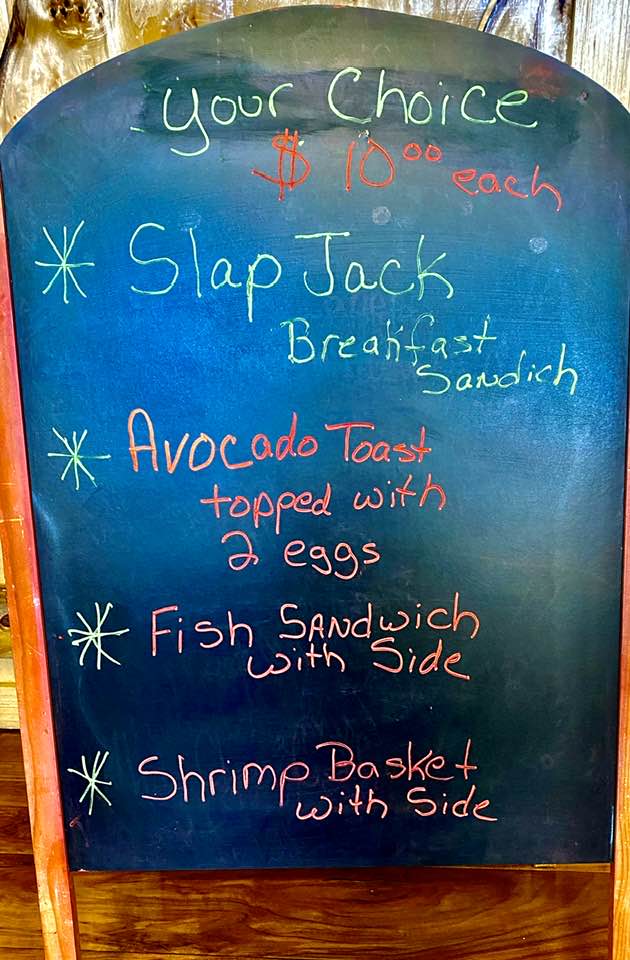 your Choice
$ 10.00 each
* Slap Jack
Breakfast
Sandich
* Avocado Toast
topped with
2 eggs
* Fish Sandwich
with Side
* Shrimp Basket
with Side